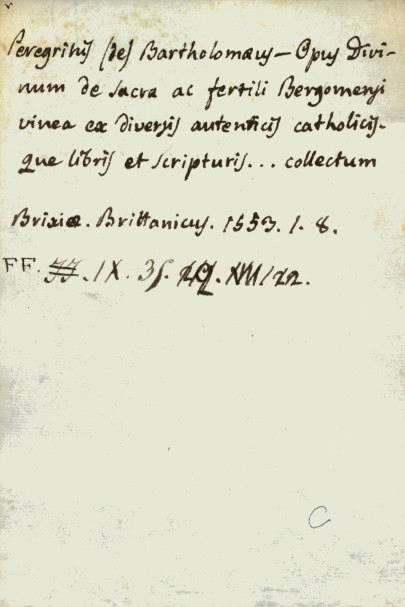 Peregrinis (de) Bartholomæus — Opus Divi-
num de sacra ac fertili Bergomensi
vinea ex diversis autenticis catholicis-
que libris et scripturis... collectum
Brixiæ. Brittanicus. 1553. 1. 8.
FF. IX. 35. XVII 22.
C